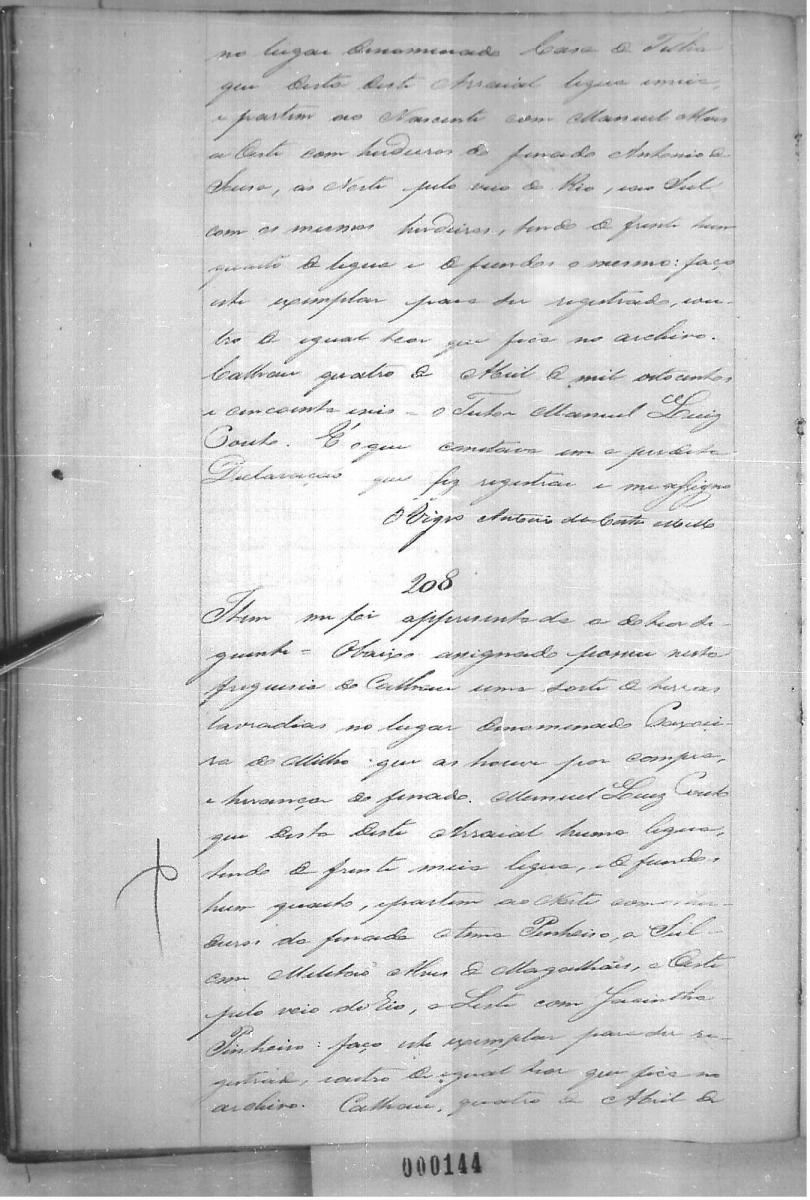 no lugar denominado Casa de Telha
que dista deste Arraial legua e meia,
e partem ao Nascente com Manuel Alves
a Oeste com herdeiros do finado Antonio de
Sousa, ao Norte pelo veio do Rio, e ao Sul
com os mesmos herdeiros, tendo de frente hum
quarto de legua e de fundos o mesmo: faço
este exemplar para ser registrado, e ou-
tro de igual theor que fica no archivo.
Calhau quatro de Abril de mil oitocentos
e cincoenta e seis = o Tutor Manuel Luiz
Couto. E' o que constava em a predita
Declaração que fiz registrar e me assigno
O Vigro Antonio da Costa
208
Item me foi appresentada a do theor se-
guinte = O baixo assignado possue nesta
freguesia do Calhau uma sorte de terras
lavradias no lugar denominado
de Milho que as houve por compra,
e herança do finado Manuel Luiz Couto
que dista deste Arraial huma legua,
tendo de frente meia legua, e de fundos
hum quarto, e partem ao Norte com os her-
deiros da finada Anna Pinheiro, a Sul =
com Militaõ Alves de Magalhães, a Oeste
pelo veio do Rio, a Leste com Jacintha
Pinheiro: faço este exemplar para ser re-
gistrado, e outro de igual theor que fica no
archivo. Calhau, quatro de Abril de
000144